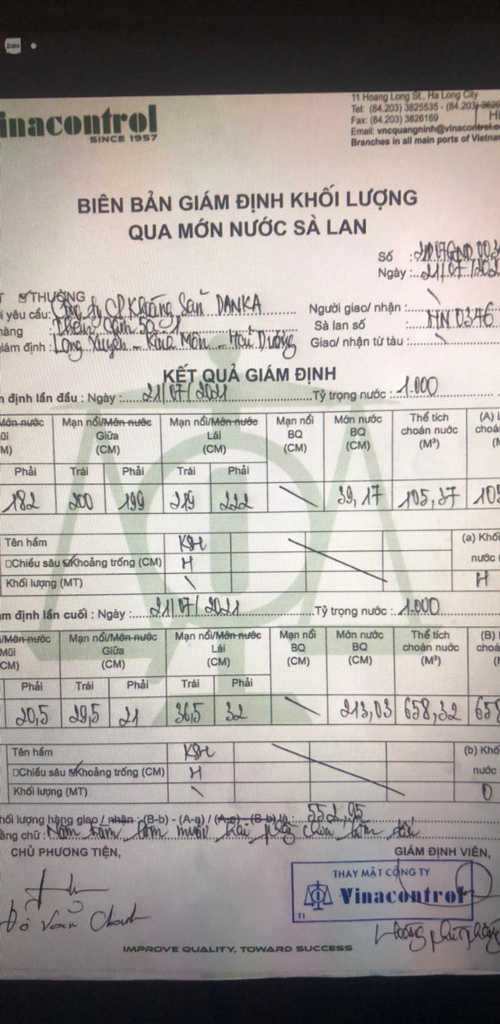 Zalo
inacontrol
SINCE 1957
11 Hoang Long St., Ha Long City
Tel: (84.203) 3825535 - (84.203)
Fax: (84.203) 3826169
Email: vncquangninh@vinacontrol.co
Branches in all main ports of Vietnam
BIÊN BẢN GIÁM ĐỊNH KHỐI LƯỢNG
QUA MỚN NƯỚC SÀ LAN
Số :
Ngày : 21/07/202
THƯỜNG
i yêu cầu: Công ty CP Khoáng Sản DANKA
Người giao/ nhận :
hàng
Sà lan số : HN 0346
giám định : Long Xuyên - Kinh Môn - Hải Dương
Giao/ nhận từ tàu :
KẾT QUẢ GIÁM ĐỊNH
m định lần đầu : Ngày : 21/07/2021 Tỷ trọng nước : 1.000
Mớn nước Mũi (CM) Mạn nổi/Mớn nước Giữa (CM) Mạn nổi/Mớn nước Lái (CM) Mạn nổi BQ (CM) Mớn nước BQ (CM) Thể tích choán nước (M³) (A) L choá
Phải Trái Phải Trái Phải
182 200 199 219 222 39,17 105,37 105
Tên hầm KSH (a) Khối
Chiều sâu Khoảng trống (CM) H nước
Khối lượng (MT) H
m định lần cuối : Ngày : 21/07/2021 Tỷ trọng nước : 1.000
/Mớn nước Mũi (CM) Mạn nổi/Mớn nước Giữa (CM) Mạn nổi/Mớn nước Lái (CM) Mạn nổi BQ (CM) Mớn nước BQ (CM) Thể tích choán nước (M³) (B) choá
Phải Trái Phải Trái Phải
20,5 29,5 21 36,5 32 213,03 658,32 658
Tên hầm KSH (b) Khố
Chiều sâu Khoảng trống (CM) H nước
Khối lượng (MT) 0
hối lượng hàng giao / nhận (B-b) - (A-a) / (A-a) - (B-b) là : 552,95
ằng chữ : Năm trăm năm mươi hai phẩy chín lăm tấn
CHỦ PHƯƠNG TIỆN,
GIÁM ĐỊNH VIÊN,
THAY MẶT CÔNG TY
Vinacontrol
Đỗ Văn
IMPROVE QUALITY, TOWARD SUCCESS